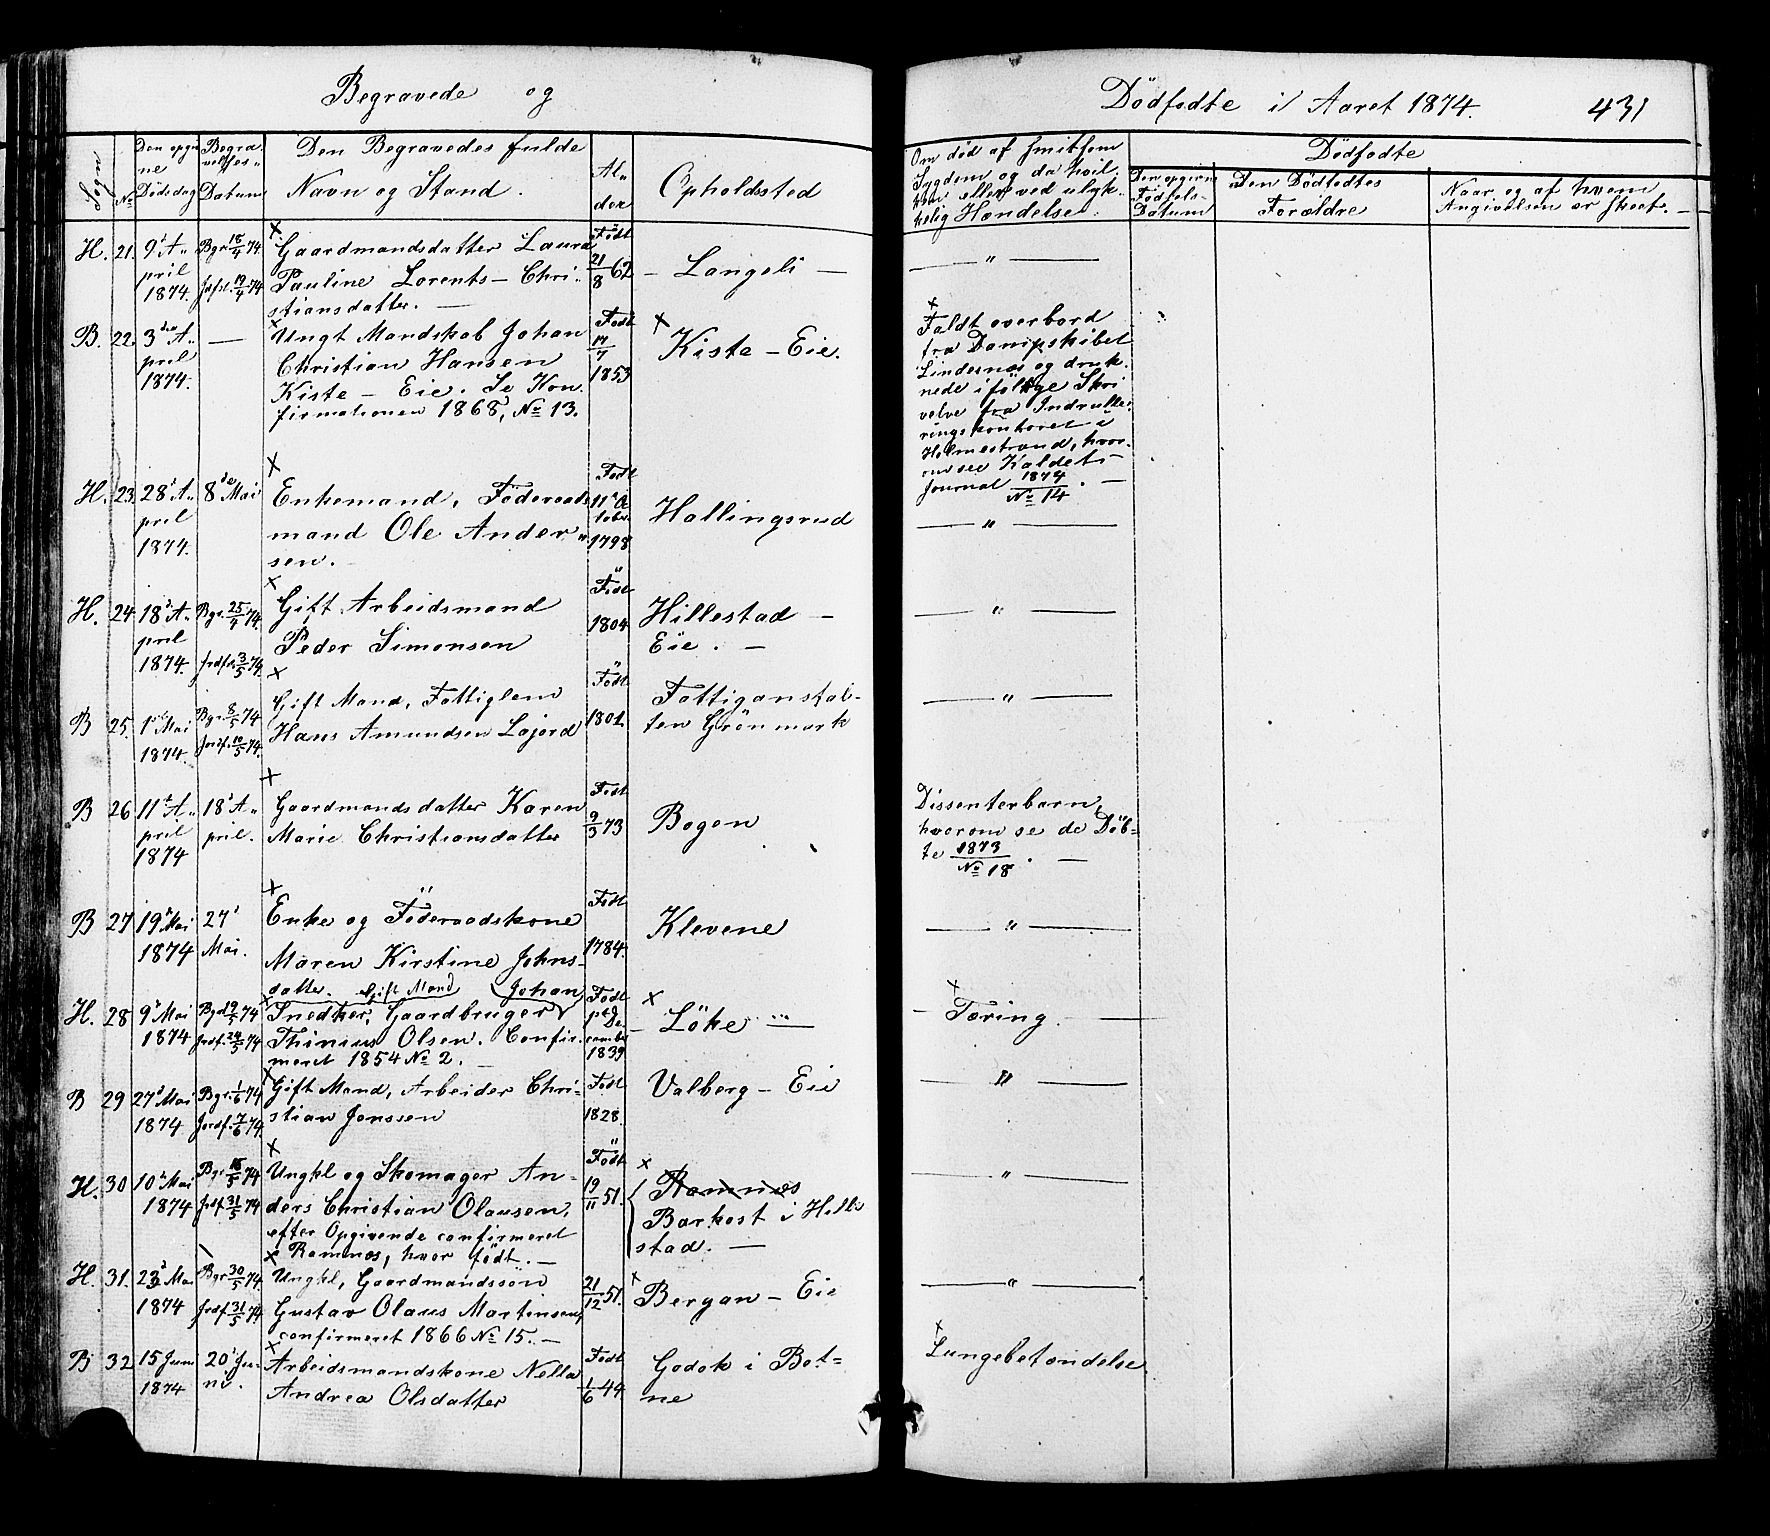 Begravede og
Dödfødte i Aaret 1874.
431
Sogn
No
Den opgivne Dödsdag
Begravelses-Datum
Den Begravedes fulde
Navn og Stand.
Alder
Opholdssted
Om död af smitsom
Sygdom og da hvilken eller ved ulykkelig Hændelse.
Dödfödte
Den opgivne Födsels-Datum
Den Dödfödtes
Forældre
Naar og af hvem
Angivelsen er skeet.
H. 21. 9' April 1874. Bgr. 18/4 74. Jrdf. 19/4 74
Gaardmandsdatter Laura
Pauline Lorents-Christiansdatter.
Født 21/8 62
Langeli
— " —
B. 22. 3die April 1874. —
Ungt Mandskab Johan
Christian Hansen
Kiste-Eie. Se Konfirmationen 1868, No 13.
Født 17/7 1853
Kiste-Eie.
Faldt overbord
fra Dampskibet
Lindesnæs og druknede ifölge Skrivelse fra Indrulleringskontoret i
Holmestrand, hvorom see Kaldets
Journal 1874 No 14.
H. 23. 28' April 1874. 8de Mai
Enkemand, Föderaadsmand Ole Andersen.
Födt 11' October 1798
Hallingsrud
— " —
H. 24. 18' April 1874. Bgr. 25/4 74. Jrdf. 3/5 74.
Gift Arbeidsmand
Peder Simonsen
Födt 1804
Hillestad-
Eie.
— " —
B 25. 1ste Mai 1874. Bgr. 8/5 74 Jordf. 10/5 74.
Gift Mand, Fattiglem
Hans Amundsen Lajord
Födt 1801.
Fattiganstalten Grönmark
— " —
B 26 11' April 1874 18' April.
Gaardmandsdatter Karen
Marie Christiansdatter
Født 9/3 73
Bogen
Dissenterbarn,
hvorom se de Döbte 1873 No 18.
B 27 19' Mai 1874 27' Mai.
Enke og Föderaadskone
Maren Kirstine Johnsdatter.
Født 1784.
Klevene
— " —
H. 28 9' Mai 1874 Bgr. 19/5 74 Jrdf. 24/5 74
Gift Mand
Snedker, Gaardbruger Johan
Thinius Olsen. Confirmeret 1854 No 2.
Født paa December 1839
Löke
Tæring.
B 29 27' Mai 1874 Bgr. 1/6 74 Jordf. 7/6 74.
Gift Mand, Arbeider Christian Jonssen
Født 1828.
Valberg-Eie
— " —
H. 30 10' Mai 1874 Bgr. 18/5 74 Jrdf. 31/5 74
Ungkl og Skomager Anders Christian Olausen,
efter Opgivende confirmeret
i Ramnæs, hvor födt.
Födt 19/11 51.
Ramnæs
Barkost i Hillestad.
— " —
H. 31. 23' Mai 1874 Bgr. 30/5 74. Jrdf. 31/5 74
Ungkl, Gaardmandssön
Gustav Olaus Martinsen,
confirmeret 1866 No 15.
21/12 51.
Bergan-Eie
— " —
B 32 15 Juni 1874 20' Juni.
Arbeidsmandskone Nella
Andrea Olsdatter
Født 1/6 44
Gadok i Botne
Lungebetændelse